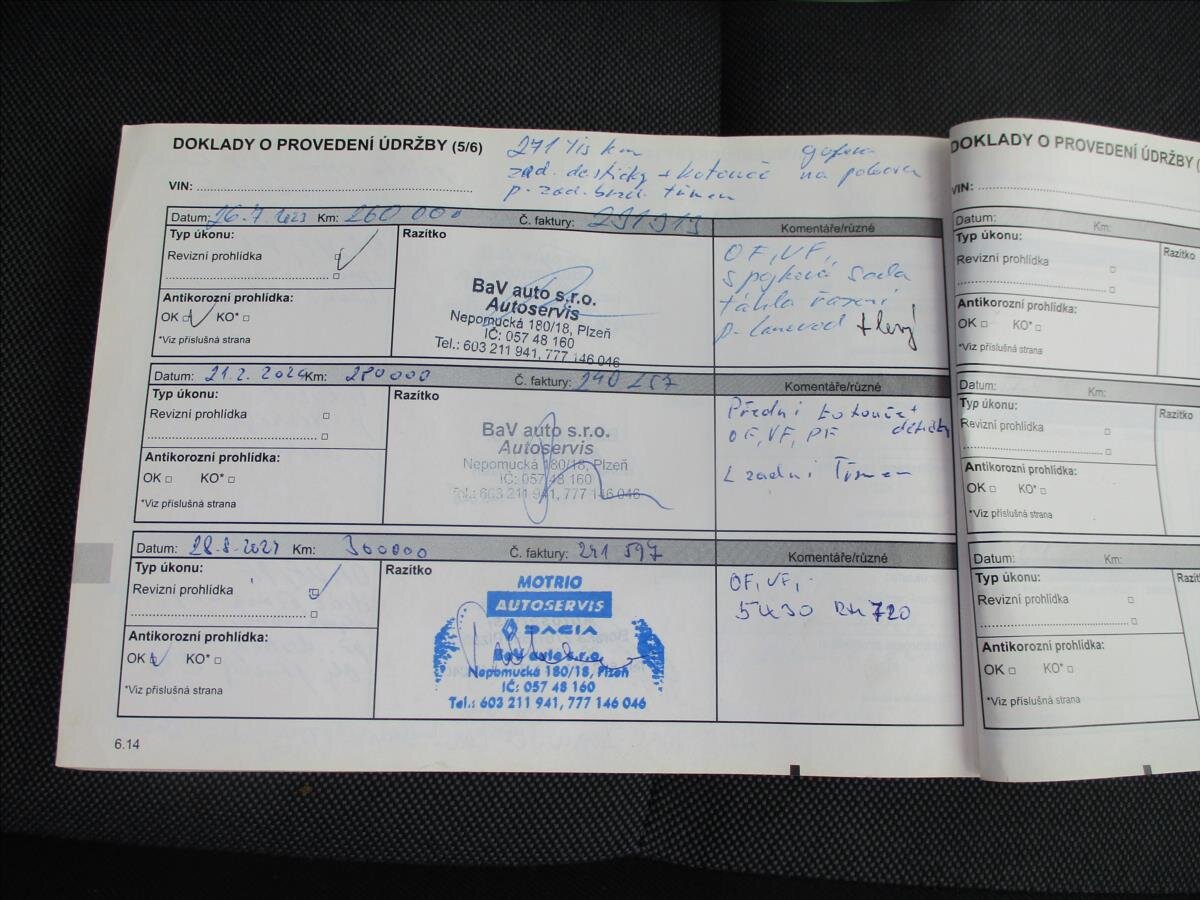 DOKLADY O PROVEDENÍ ÚDRŽBY (5/6)
271 tis km
zad. destičky + kotouče na polovin
p. zad. brzd. třmen
VIN:
Datum: 26.7 2023 Km: 260 000 Č. faktury: 231313 Komentáře/různé
Typ úkonu:
Revizní prohlídka
Antikorozní prohlídka:
OK KO*
*Viz příslušná strana
Razítko
BaV auto s.r.o.
Autoservis
Nepomucká 180/18, Plzeň
IČ: 057 48 160
Tel.: 603 211 941, 777 146 046
OF, VF,
spojková sada
táhla řazení
+ levý
Datum: 21.2. 2024 Km: 280000 Č. faktury: 240 257 Komentáře/různé
Typ úkonu:
Revizní prohlídka
Antikorozní prohlídka:
OK KO*
*Viz příslušná strana
Razítko
BaV auto s.r.o.
Autoservis
Nepomucká 180/18, Plzeň
IČ: 057 48 160
Tel.: 603 211 941, 777 146 046
Přední kotouče +
OF, VF, PF
L zadní Třmen
Datum: 28.8.2024 Km: 300000 Č. faktury: 241 597 Komentáře/různé
Typ úkonu:
Revizní prohlídka
Antikorozní prohlídka:
OK KO*
*Viz příslušná strana
Razítko
MOTRIO
AUTOSERVIS
DACIA
BaV auto s.r.o.
Nepomucká 180/18, Plzeň
IČ: 057 48 160
Tel.: 603 211 941, 777 146 046
OF, VF,
5W30 RN 720
6.14
DOKLADY O PROVEDENÍ ÚDRŽBY (
VIN:
Datum: Km:
Typ úkonu:
Revizní prohlídka
Antikorozní prohlídka:
OK KO*
*Viz příslušná strana
Razítko
Datum: Km:
Typ úkonu:
Revizní prohlídka
Antikorozní prohlídka:
OK KO*
*Viz příslušná strana
Razítko
Datum: Km:
Typ úkonu:
Revizní prohlídka
Antikorozní prohlídka:
OK KO*
*Viz příslušná strana
Razít